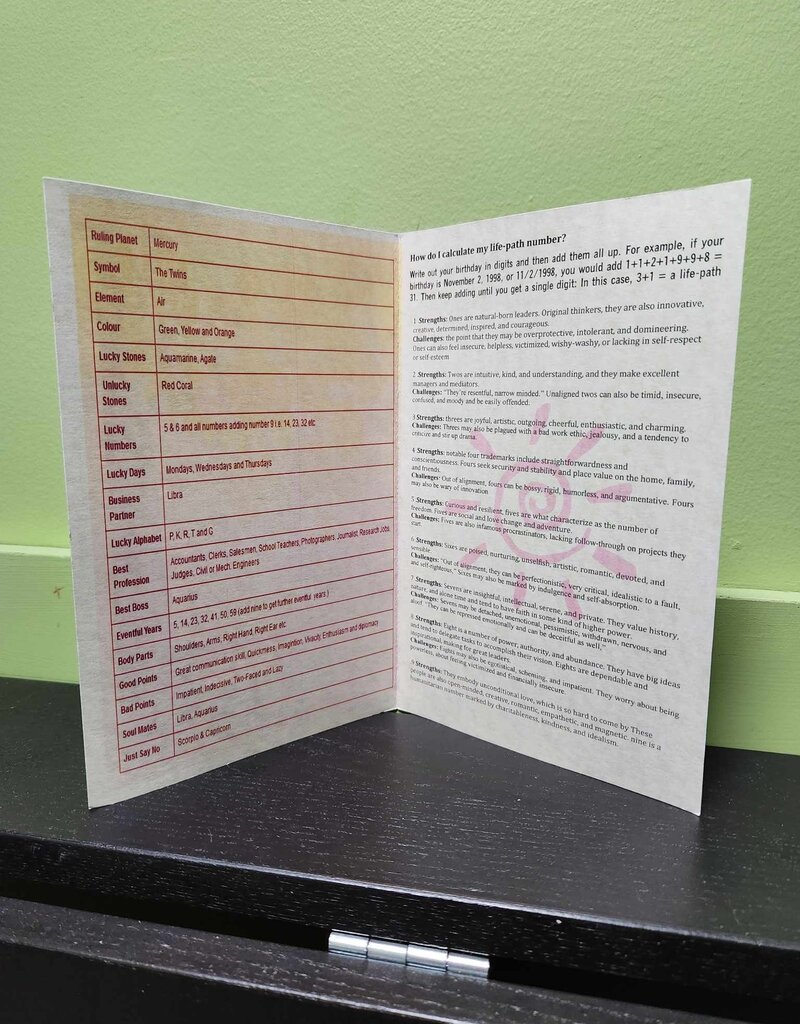 Ruling Planet Mercury
Symbol The Twins
Element Air
Colour Green, Yellow and Orange
Lucky Stones Aquamarine, Agate
Unlucky Red Coral
Stones
Lucky 5 & 6 and all numbers adding number 9 i.e. 14, 23, 32 etc
Numbers
Lucky Days Mondays, Wednesdays and Thursdays
Business Libra
Partner
Lucky Alphabet P, K, R, T and G
Best Accountants, Clerks, Salesmen, School Teachers, Photographers, Journalist, Research Jobs,
Profession Judges, Civil or Mech. Engineers
Best Boss Aquarius
Eventful Years 5, 14, 23, 32, 41, 50, 59 (add nine to get further eventful years )
Body Parts Shoulders, Arms, Right Hand, Right Ear etc
Good Points Great communication skill, Quickness, Imagntion, Vivacity, Enthusiasm and diplomacy
Bad Points Impatient, Indecisive, Two-Faced and Lazy
Soul Mates Libra, Aquarius
Just Say No Scorpio & Capricorn
How do I calculate my life-path number?
Write out your birthday in digits and then add them all up. For example, if your
birthday is November 2, 1998, or 11/2/1998, you would add 1+1+2+1+9+9+8 =
31. Then keep adding until you get a single digit: In this case, 3+1 = a life-path
1 Strengths: Ones are natural-born leaders. Original thinkers, they are also innovative,
creative, determined, inspired, and courageous.
Challenges: the point that they may be overprotective, intolerant, and domineering.
Ones can also feel insecure, helpless, victimized, wishy-washy, or lacking in self-respect
or self-esteem
2 Strengths: Twos are intuitive, kind, and understanding, and they make excellent
managers and mediators.
Challenges: "They're resentful, narrow minded." Unaligned twos can also be timid, insecure,
confused, and moody and be easily offended.
3 Strengths: threes are joyful, artistic, outgoing, cheerful, enthusiastic, and charming.
Challenges: Threes may also be plagued with a bad work ethic, jealousy, and a tendency to
criticize and stir up drama.
4 Strengths: notable four trademarks include straightforwardness and
conscientiousness. Fours seek security and stability and place value on the home, family,
and friends.
Challenges: Out of alignment, fours can be bossy, rigid, humorless, and argumentative. Fours
may also be wary of innovation
5 Strengths: Curious and resilient, fives are what characterize as the number of
freedom. Fives are social and love change and adventure.
Challenges: Fives are also infamous procrastinators, lacking follow-through on projects they
start
6 Strengths: Sixes are poised, nurturing, unselfish, artistic, romantic, devoted, and
sensible
Challenges: "Out of alignment, they can be perfectionistic, very critical, idealistic to a fault,
and self-righteous," Sixes may also be marked by indulgence and self-absorption.
7 Strengths: Sevens are insightful, intellectual, serene, and private. They value history,
nature, and alone time and tend to have faith in some kind of higher power.
Challenges: Sevens may be detached, unemotional, pessimistic, withdrawn, nervous, and
aloof "They can be repressed emotionally and can be deceitful as well,"
8 Strengths: Eight is a number of power, authority, and abundance. They have big ideas
and tend to delegate tasks to accomplish their vision. Eights are dependable and
inspirational, making for great leaders.
Challenges: Eights may be egotistical, scheming, and impatient. They worry about being
powerless, about feeling victimized and financially insecure.
9 Strengths: They embody unconditional love, which is so hard to come by These
people are also open-minded, creative, romantic, empathetic, and magnetic. nine is a
humanitarian number marked by charitableness, kindness, and idealism.